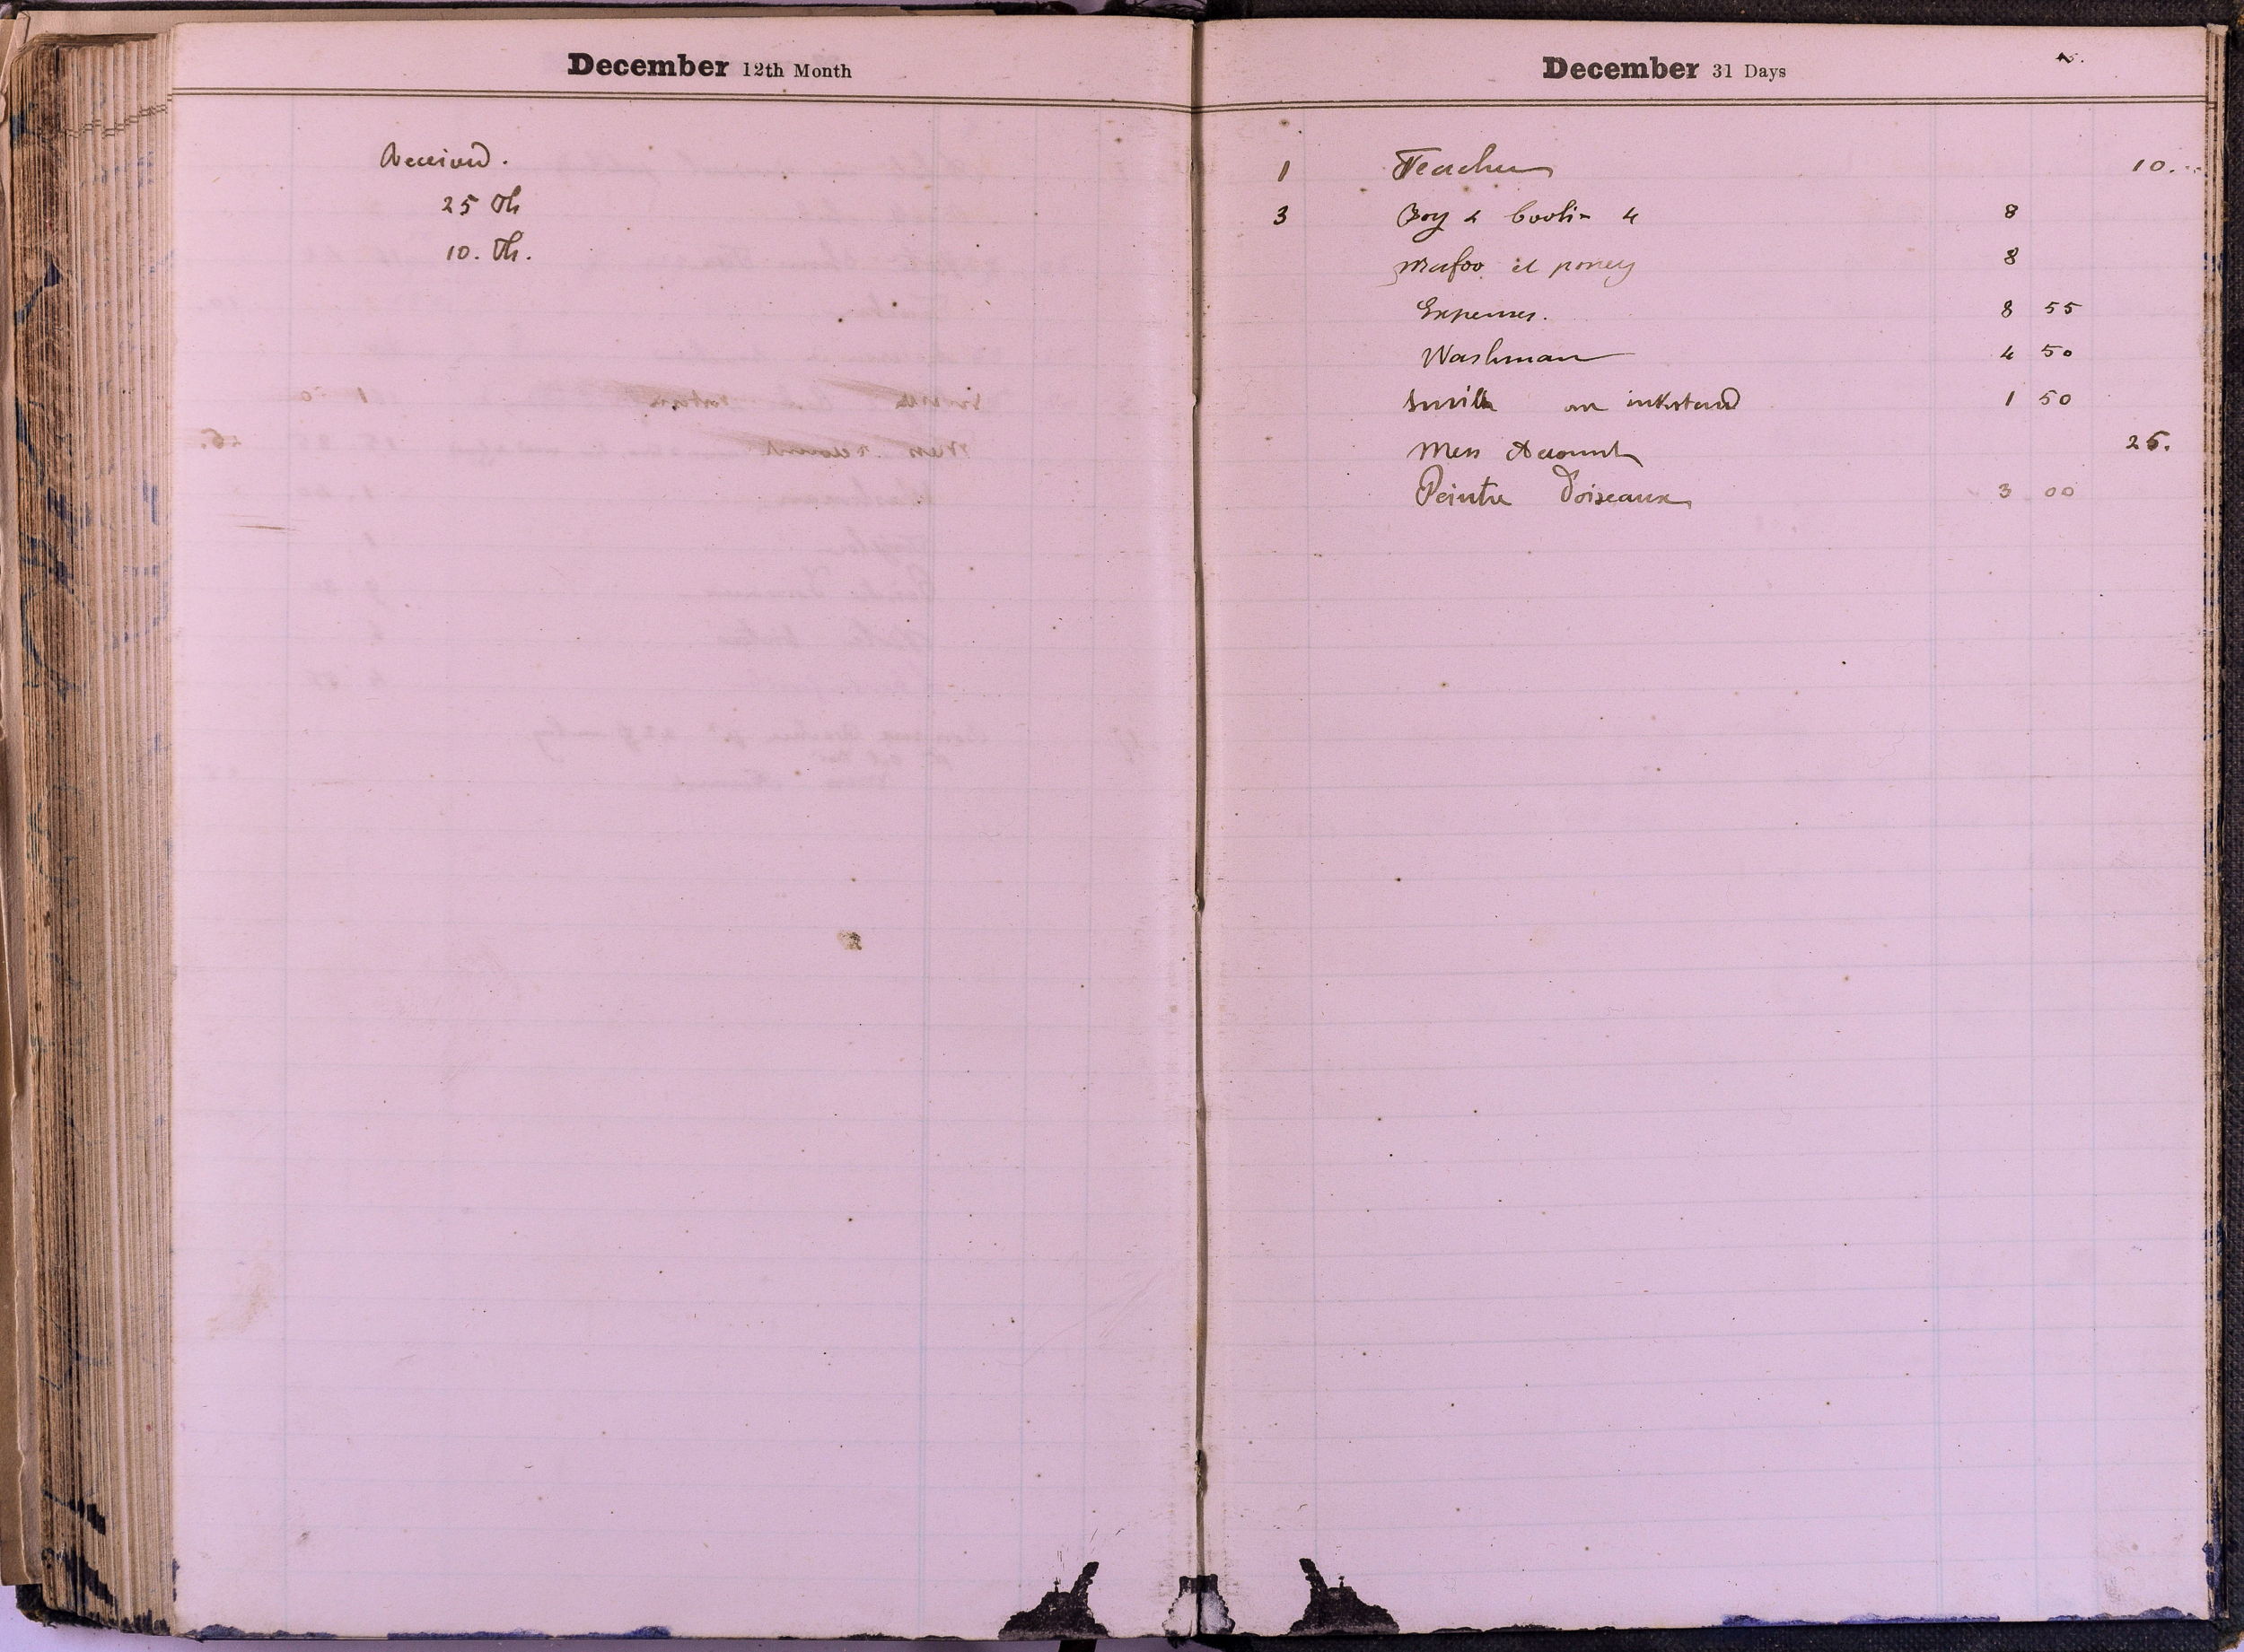 December 12th Month
Received.
25 Th
10. Th.
December 31 Days
1 Teacher 10.
3 Boy & Cooli- 4 8
Mafoo et poney 8
Expenses. 8 55
Washman 4 50
an inkstand 1 50
Mess Account 25.
Peintre d'oiseaux 3 00